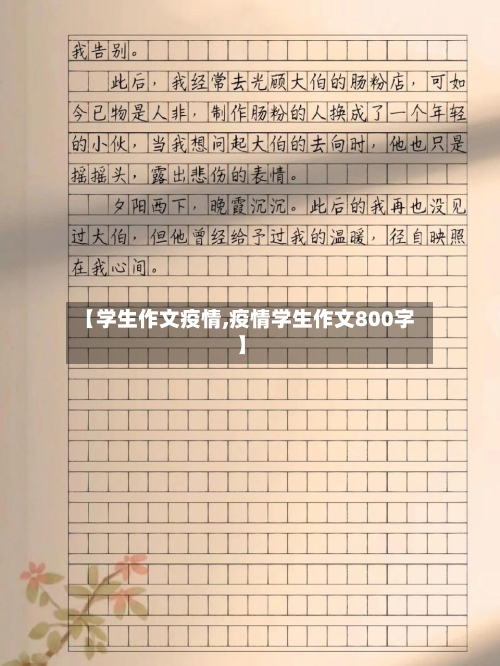 我告别。
此后，我经常去光顾大伯的肠粉店，可如
今已物是人非，制作肠粉的人换成了一个年轻
的小伙，当我想问起大伯的去向时，他也只是
摇摇头，露出悲伤的表情。
夕阳西下，晚霞沉沉。此后的我再也没见
过大伯，但他曾经给予过我的温暖，径自映照
在我心间。
【学生作文疫情,疫情学生作文800字
】